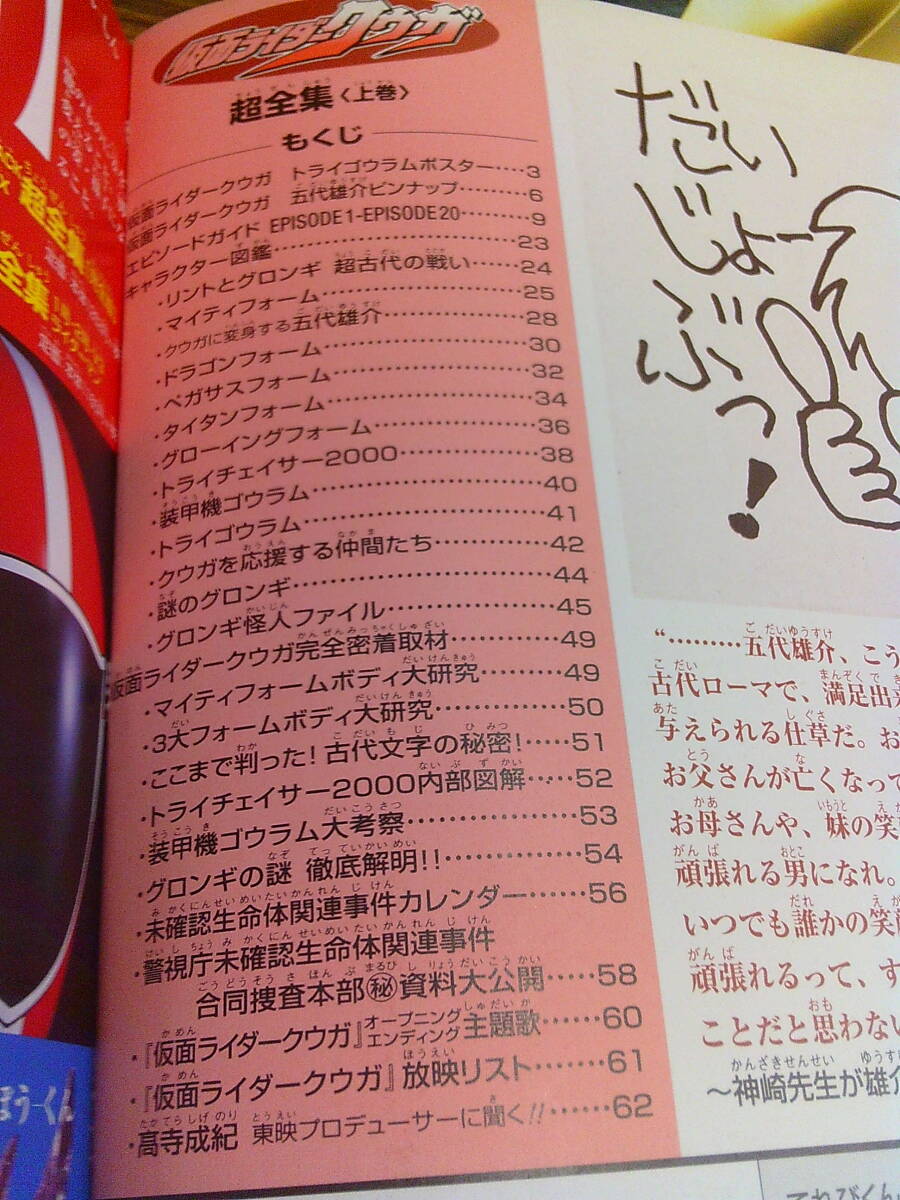 仮面ライダークウガ
超全集〈上巻〉
もくじ
仮面ライダークウガ トライゴウラムポスター……3
仮面ライダークウガ 五代雄介ピンナップ……6
エピソードガイド EPISODE1-EPISODE20……9
キャラクター図鑑……23
・リントとグロンギ 超古代の戦い……24
・マイティフォーム……25
・クウガに変身する五代雄介……28
・ドラゴンフォーム……30
・ペガサスフォーム……32
・タイタンフォーム……34
・グローイングフォーム……36
・トライチェイサー2000……38
・装甲機ゴウラム……40
・トライゴウラム……41
・クウガを応援する仲間たち……42
・謎のグロンギ……44
・グロンギ怪人ファイル……45
仮面ライダークウガ完全密着取材……49
・マイティフォームボディ大研究……49
・3大フォームボディ大研究……50
・ここまで判った!古代文字の秘密!……51
・トライチェイサー2000内部図解……52
・装甲機ゴウラム大考察……53
・グロンギの謎 徹底解明!!……54
・未確認生命体関連事件カレンダー……56
・警視庁未確認生命体関連事件
合同捜査本部㊙資料大公開……58
・『仮面ライダークウガ』オープニング エンディング主題歌……60
・『仮面ライダークウガ』放映リスト……61
・髙寺成紀 東映プロデューサーに聞く!!……62
だいじょーぶっ!
“………五代雄介、こう
古代ローマで、満足出来
与えられる仕草だ。お
お父さんが亡くなって
お母さんや、妹の笑
頑張れる男になれ。
いつでも誰かの笑顔
頑張れるって、す
ことだと思わない
〜神崎先生が雄介
てれびくん
超全集
全集
ぼうーくん